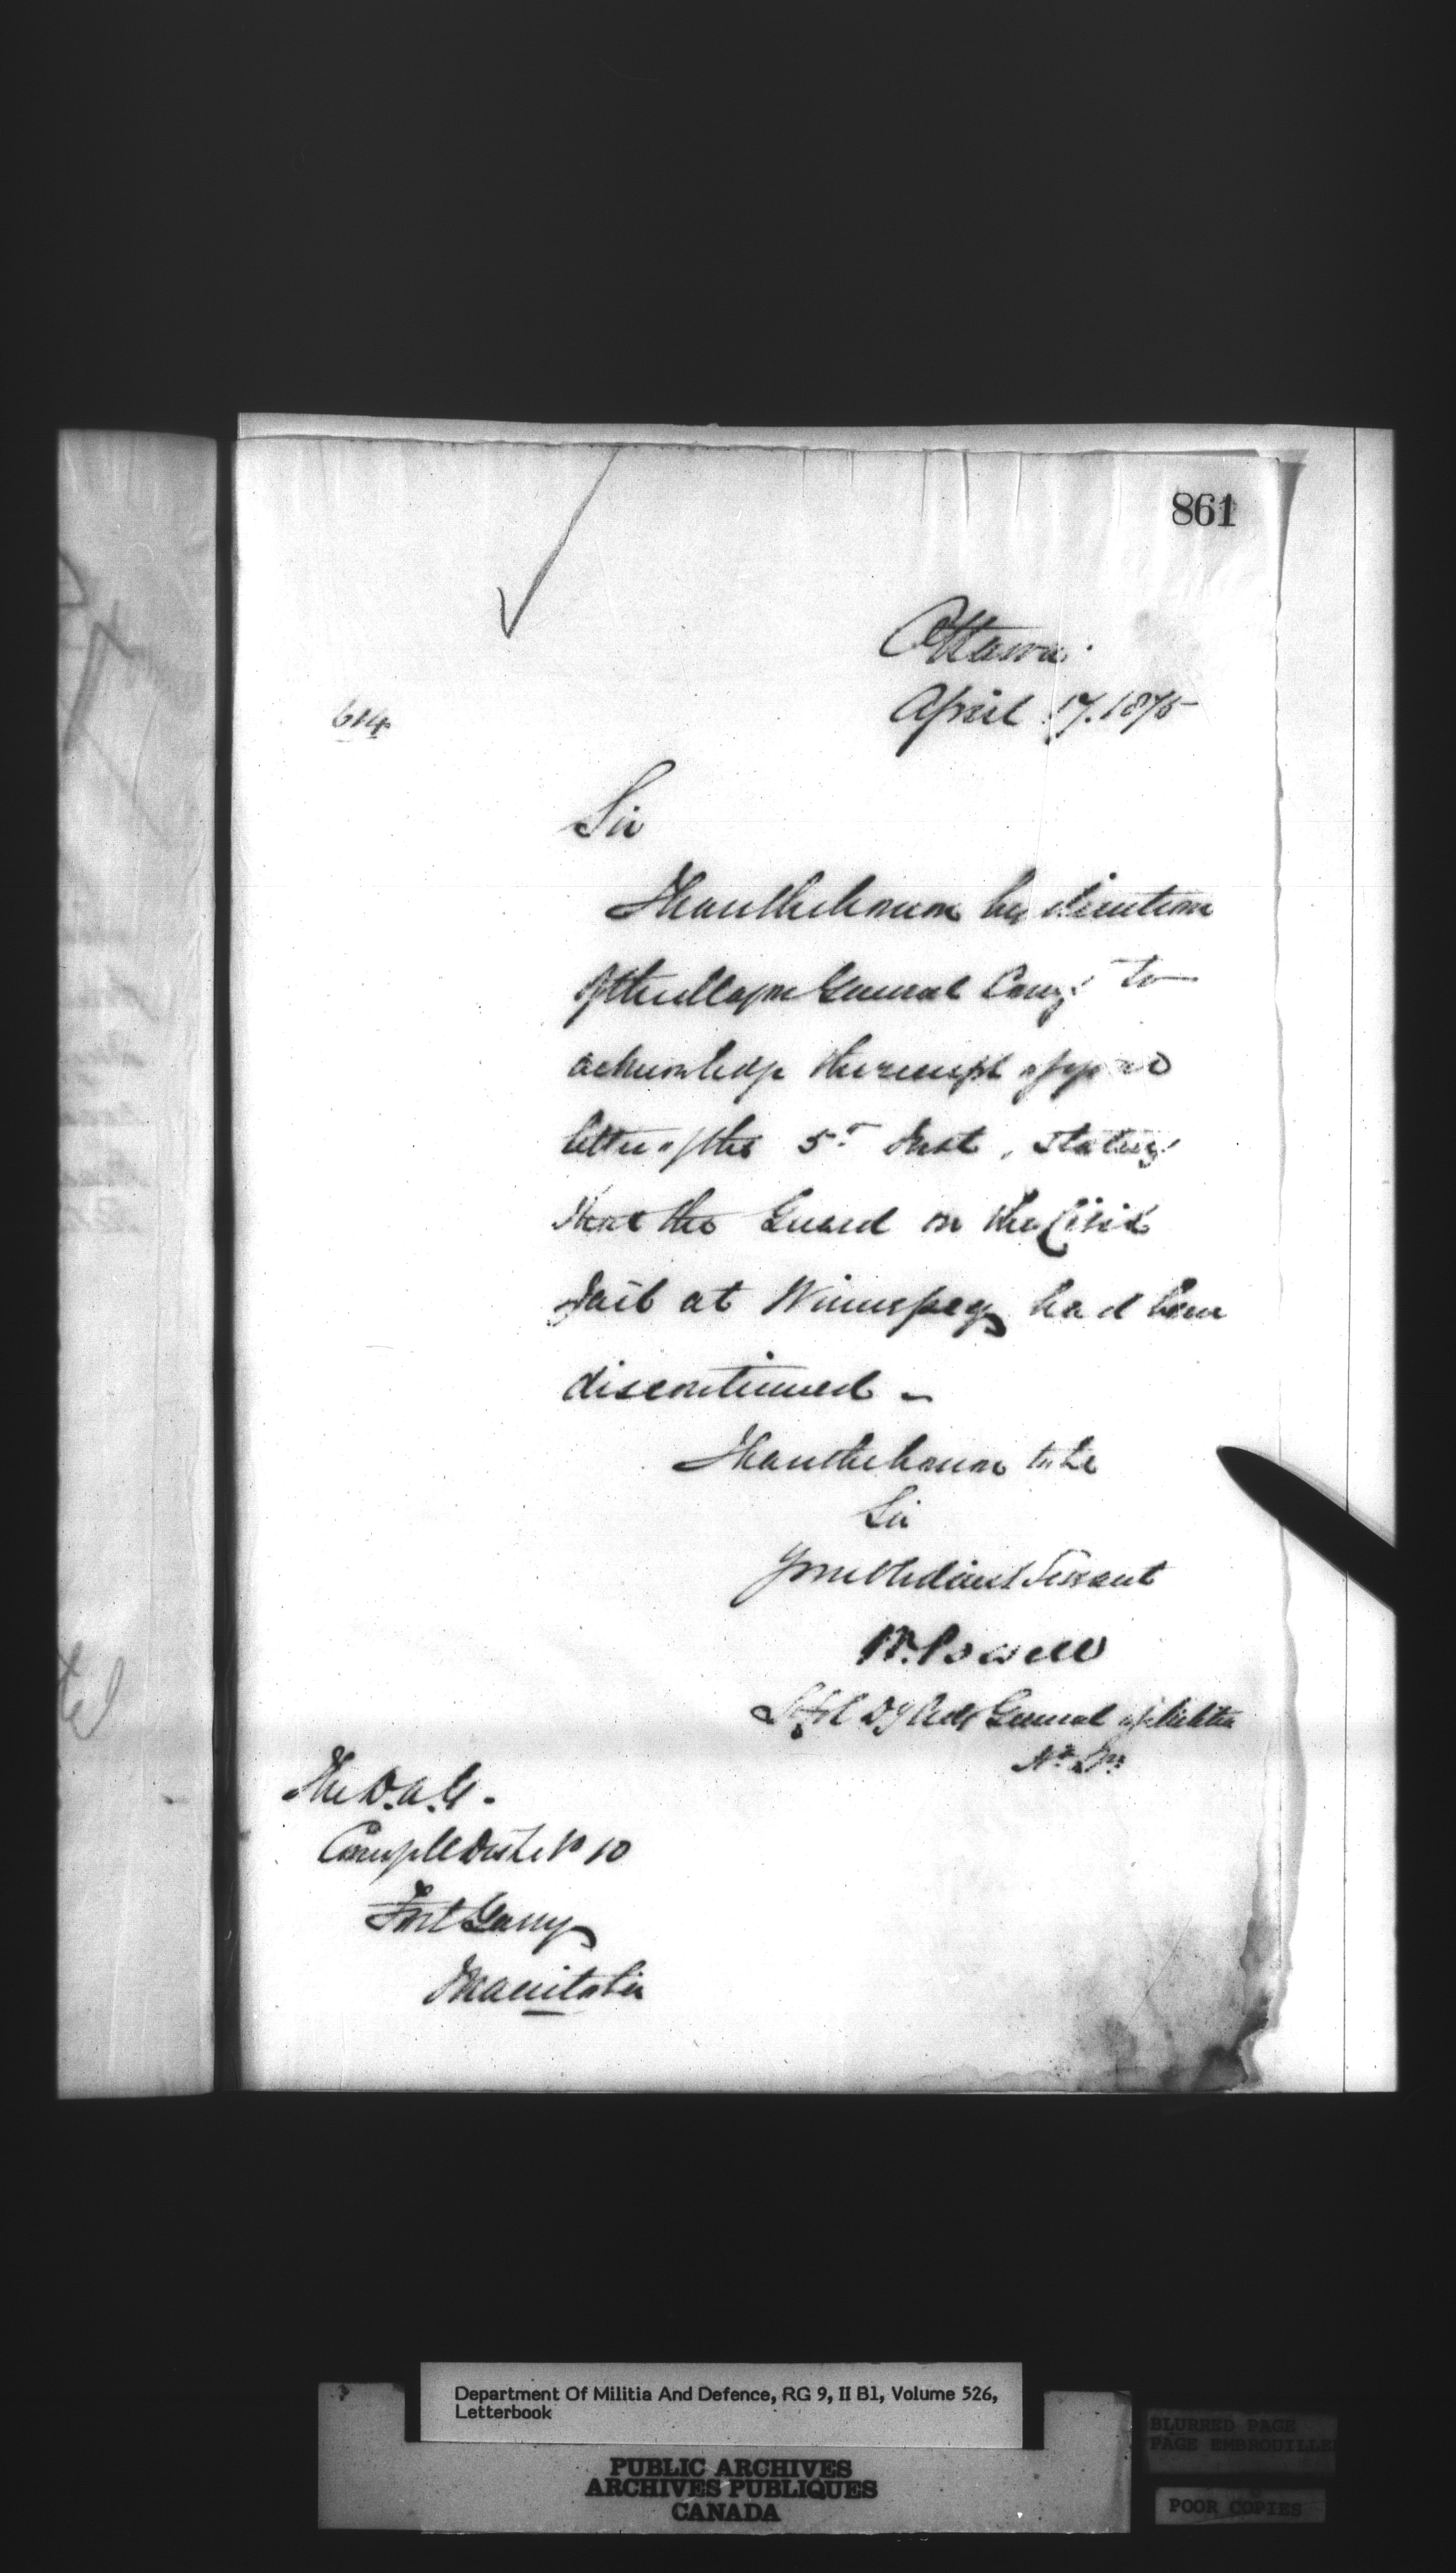 861
Ottawa.
April 17. 1875
614
Sir
I have the honour by direction
of the Major General Comg to
acknowledge the receipt of your
letter of the 5th Inst, stating
that the Guard on the Civil
Jail at Winnipeg had been
discontinued —
I have the honour to be
Sir
Your Obedient Servant
W. Powell
Lt Col Dy Adjt General of Militia
Hd Qrs
The D.A.G.
Comg Mil Dist No 10
Fort Garry
Manitoba
Department Of Militia And Defence, RG 9, II B1, Volume 526,
Letterbook
PUBLIC ARCHIVES
ARCHIVES PUBLIQUES
CANADA
BLURRED PAGE
PAGE EMBROUILLE
POOR COPIES